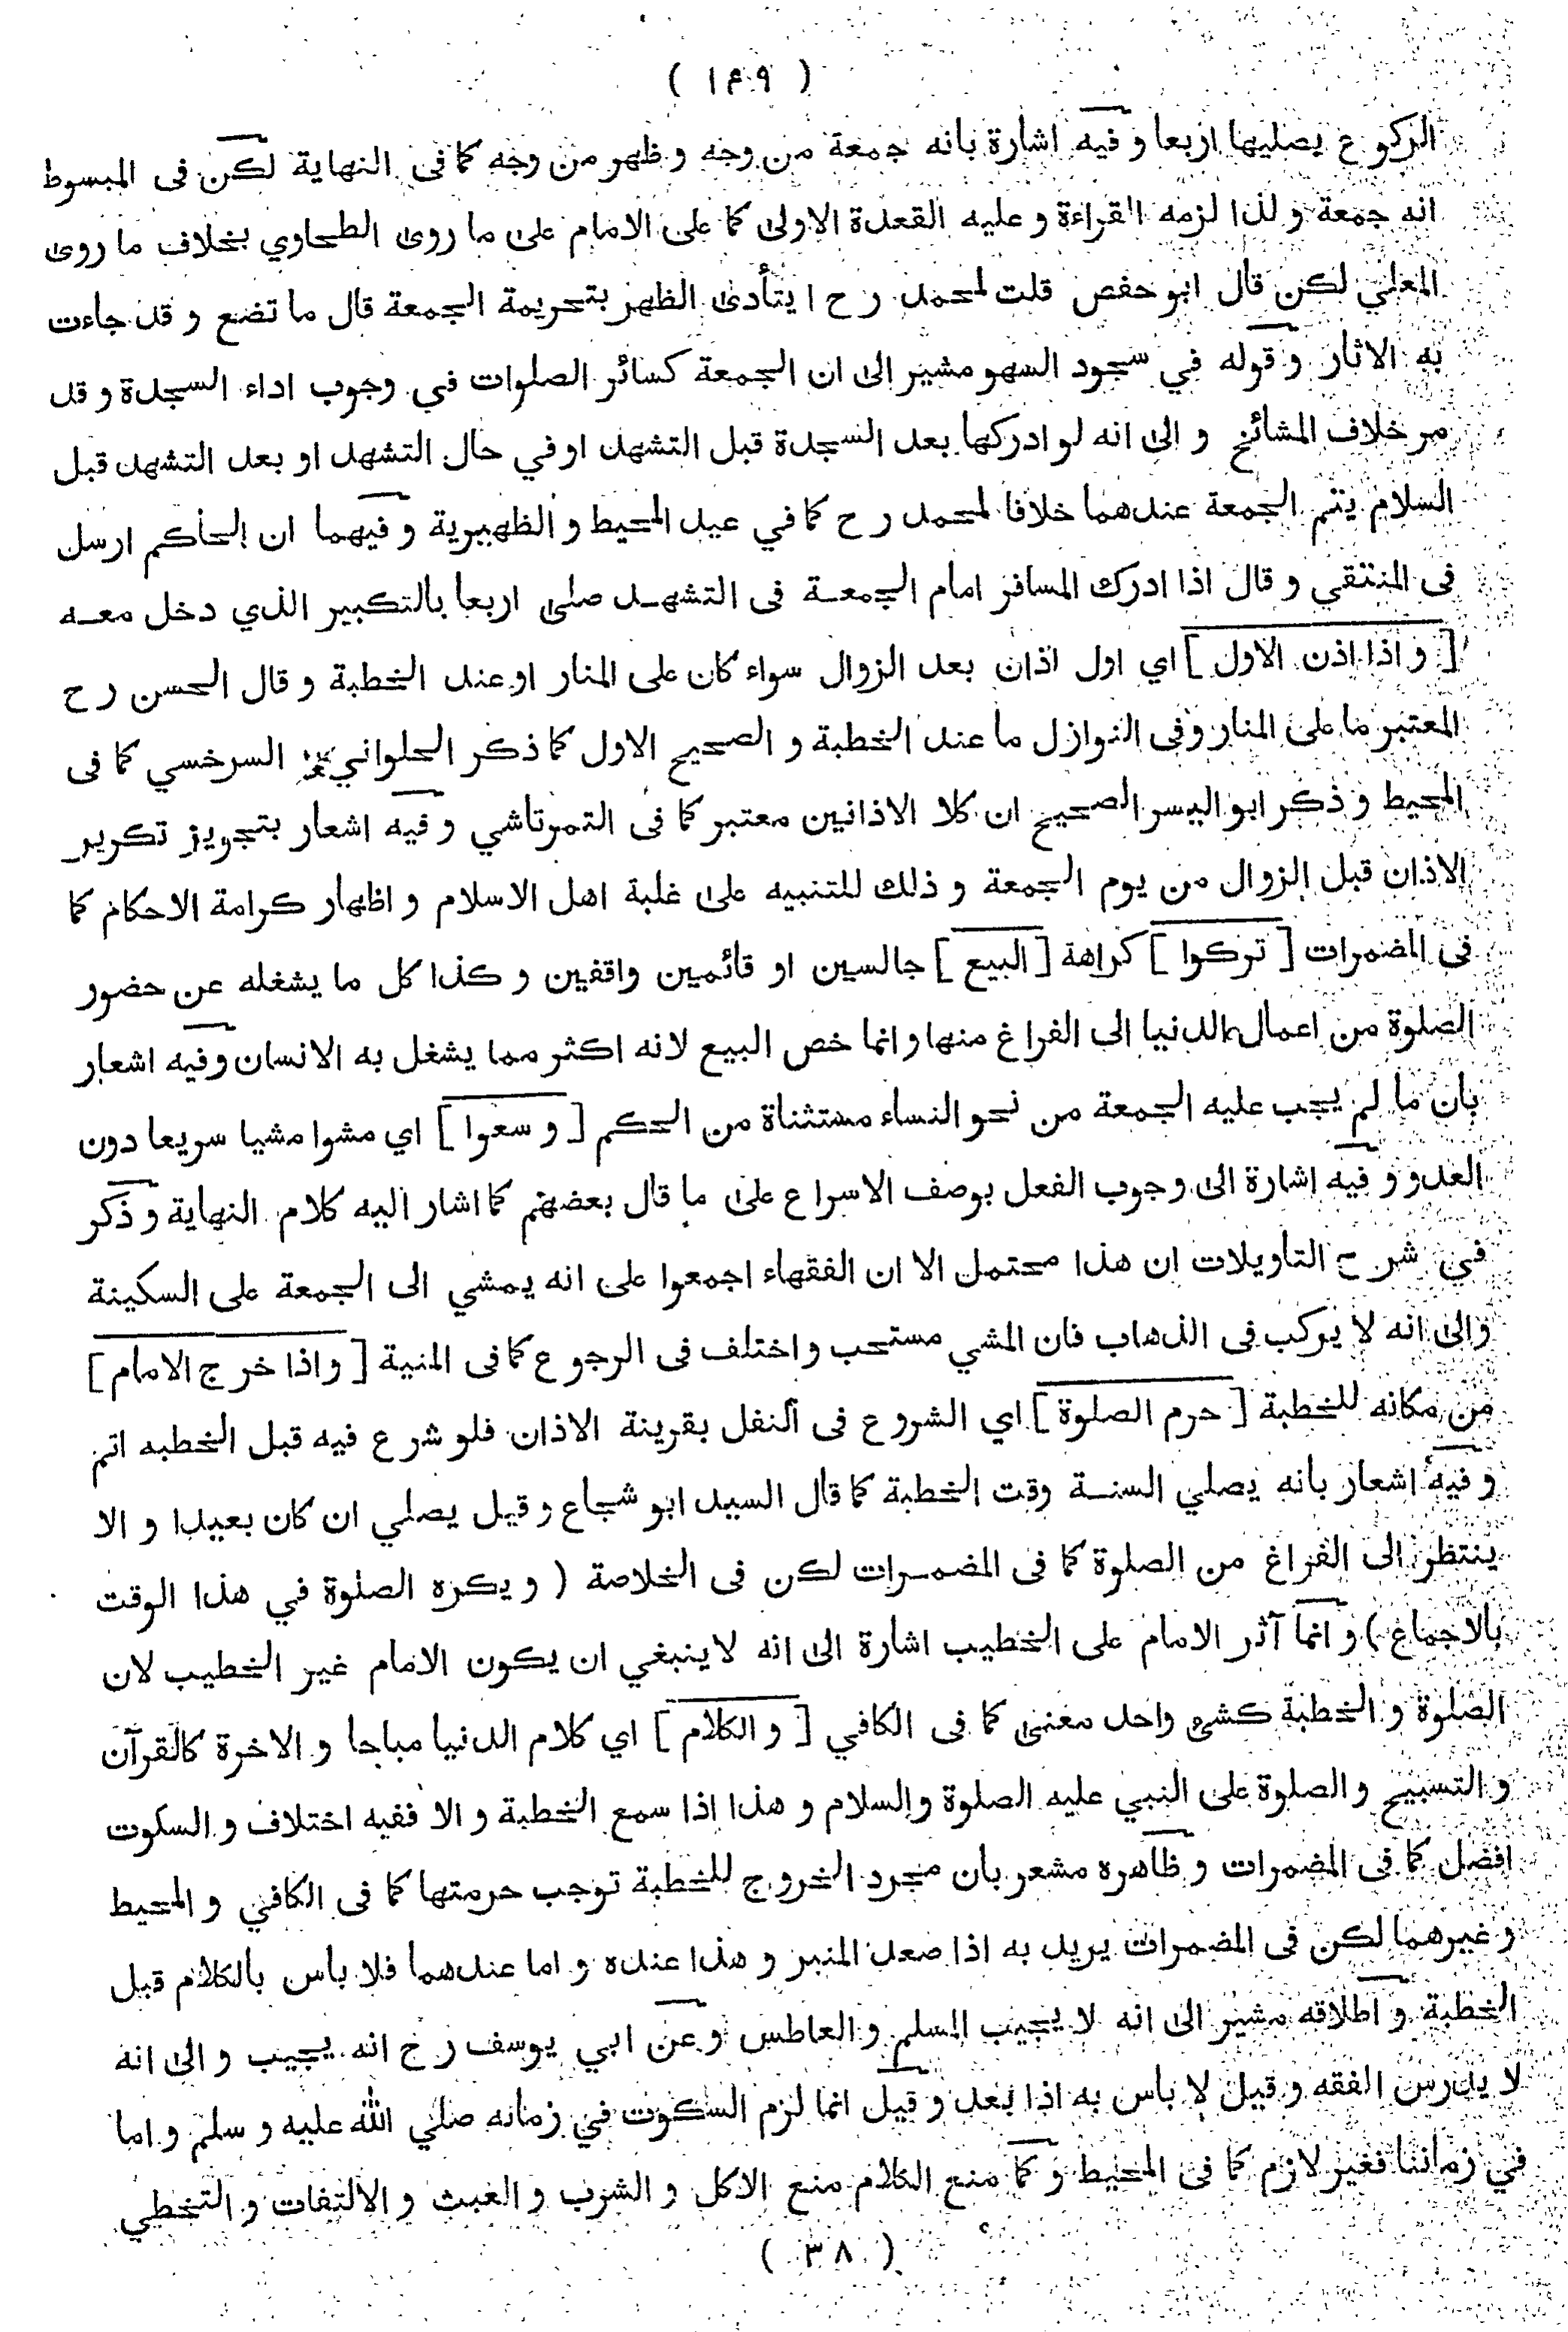 ( ١٤٩ )
الركوع يصليها اربعا و فيه اشارة بانه جمعة من وجه و ظهر من وجه كما فى النهاية لكن فى المبسوط
انه جمعة و لذا لزمه القراءة و عليه القعدة الاولى كما على الامام على ما روى الطحاوي بخلاف ما روى
المعلي لكن قال ابو حفص قلت لمحمد رح ا يتأدى الظهر بتحريمة الجمعة قال ما تضع و قد جاءت
به الاثار و قوله في سجود السهو مشير الى ان الجمعة كسائر الصلوات في وجوب اداء السجدة و قد
مر خلاف المشائخ و الى انه لو ادركها بعد السجدة قبل التشهد او في حال التشهد او بعد التشهد قبل
السلام يتم الجمعة عندهما خلافا لمحمد رح كما في عيد المحيط و الظهيرية و فيهما ان الحاكم ارسل
فى المنتقي و قال اذا ادرك المسافر امام الجمعة فى التشهد صلى اربعا بالتكبير الذي دخل معه
[ و اذا اذن الاول ] اي اول اذان بعد الزوال سواء كان على المنار او عند الخطبة و قال الحسن رح
المعتبر ما على المنار وفى النوازل ما عند الخطبة و الصحيح الاول كما ذكر الحلواني السرخسي كما فى
المحيط و ذكر ابو اليسر الصحيح ان كلا الاذانين معتبر كما فى التمرتاشي و فيه اشعار بتجويز تكرير
الاذان قبل الزوال من يوم الجمعة و ذلك للتنبيه على غلبة اهل الاسلام و اظهار كرامة الاحكام كما
فى المضمرات [ تركوا ] كراهة [ البيع ] جالسين او قائمين واقفين و كذا كل ما يشغله عن حضور
الصلوة من اعمال الدنيا الى الفراغ منها و انما خص البيع لانه اكثر مما يشغل به الانسان وفيه اشعار
بان ما لم يجب عليه الجمعة من نحو النساء مستثناة من الحكم [ و سعوا ] اي مشوا مشيا سريعا دون
العدو و فيه اشارة الى وجوب الفعل بوصف الاسراع على ما قال بعضهم كما اشار اليه كلام النهاية و ذكر
في شرح التاويلات ان هذا محتمل الا ان الفقهاء اجمعوا على انه يمشي الى الجمعة على السكينة
والى انه لا يركب فى الذهاب فان المشي مستحب و اختلف فى الرجوع كما فى المنية [ واذا خرج الامام ]
من مكانه للخطبة [ حرم الصلوة ] اي الشروع فى النفل بقرينة الاذان فلو شرع فيه قبل الخطبه اتم
و فيه اشعار بانه يصلي السنة وقت الخطبة كما قال السيد ابو شجاع و قيل يصلي ان كان بعيدا و الا
ينتظر الى الفراغ من الصلوة كما فى المضمرات لكن فى الخلاصة ( و يكره الصلوة في هذا الوقت
بالاجماع ) و انما آثر الامام على الخطيب اشارة الى انه لا ينبغي ان يكون الامام غير الخطيب لان
الصلوة و الخطبة كشئ واحد معنى كما فى الكافي [ و الكلام ] اي كلام الدنيا مباحا و الاخرة كالقرآن
و التسبيح و الصلوة على النبي عليه الصلوة والسلام و هذا اذا سمع الخطبة و الا ففيه اختلاف و السكوت
افضل كما فى المضمرات و ظاهره مشعر بان مجرد الخروج للخطبة توجب حرمتها كما فى الكافي و المحيط
و غيرهما لكن فى المضمرات يريد به اذا صعد المنبر و هذا عنده و اما عندهما فلا باس بالكلام قبل
الخطبة و اطلاقه مشير الى انه لا يجيب المسلم و العاطس و عن ابي يوسف رح انه يجيب و الى انه
لا يدرس الفقه و قيل لا باس به اذا بعد و قيل انما لزم السكوت في زمانه صلي الله عليه و سلم و اما
في زماننا فغير لازم كما فى المحيط و كما منع الكلام منع الاكل و الشرب و العبث و الالتفات و التخطي
( ٣٨ )